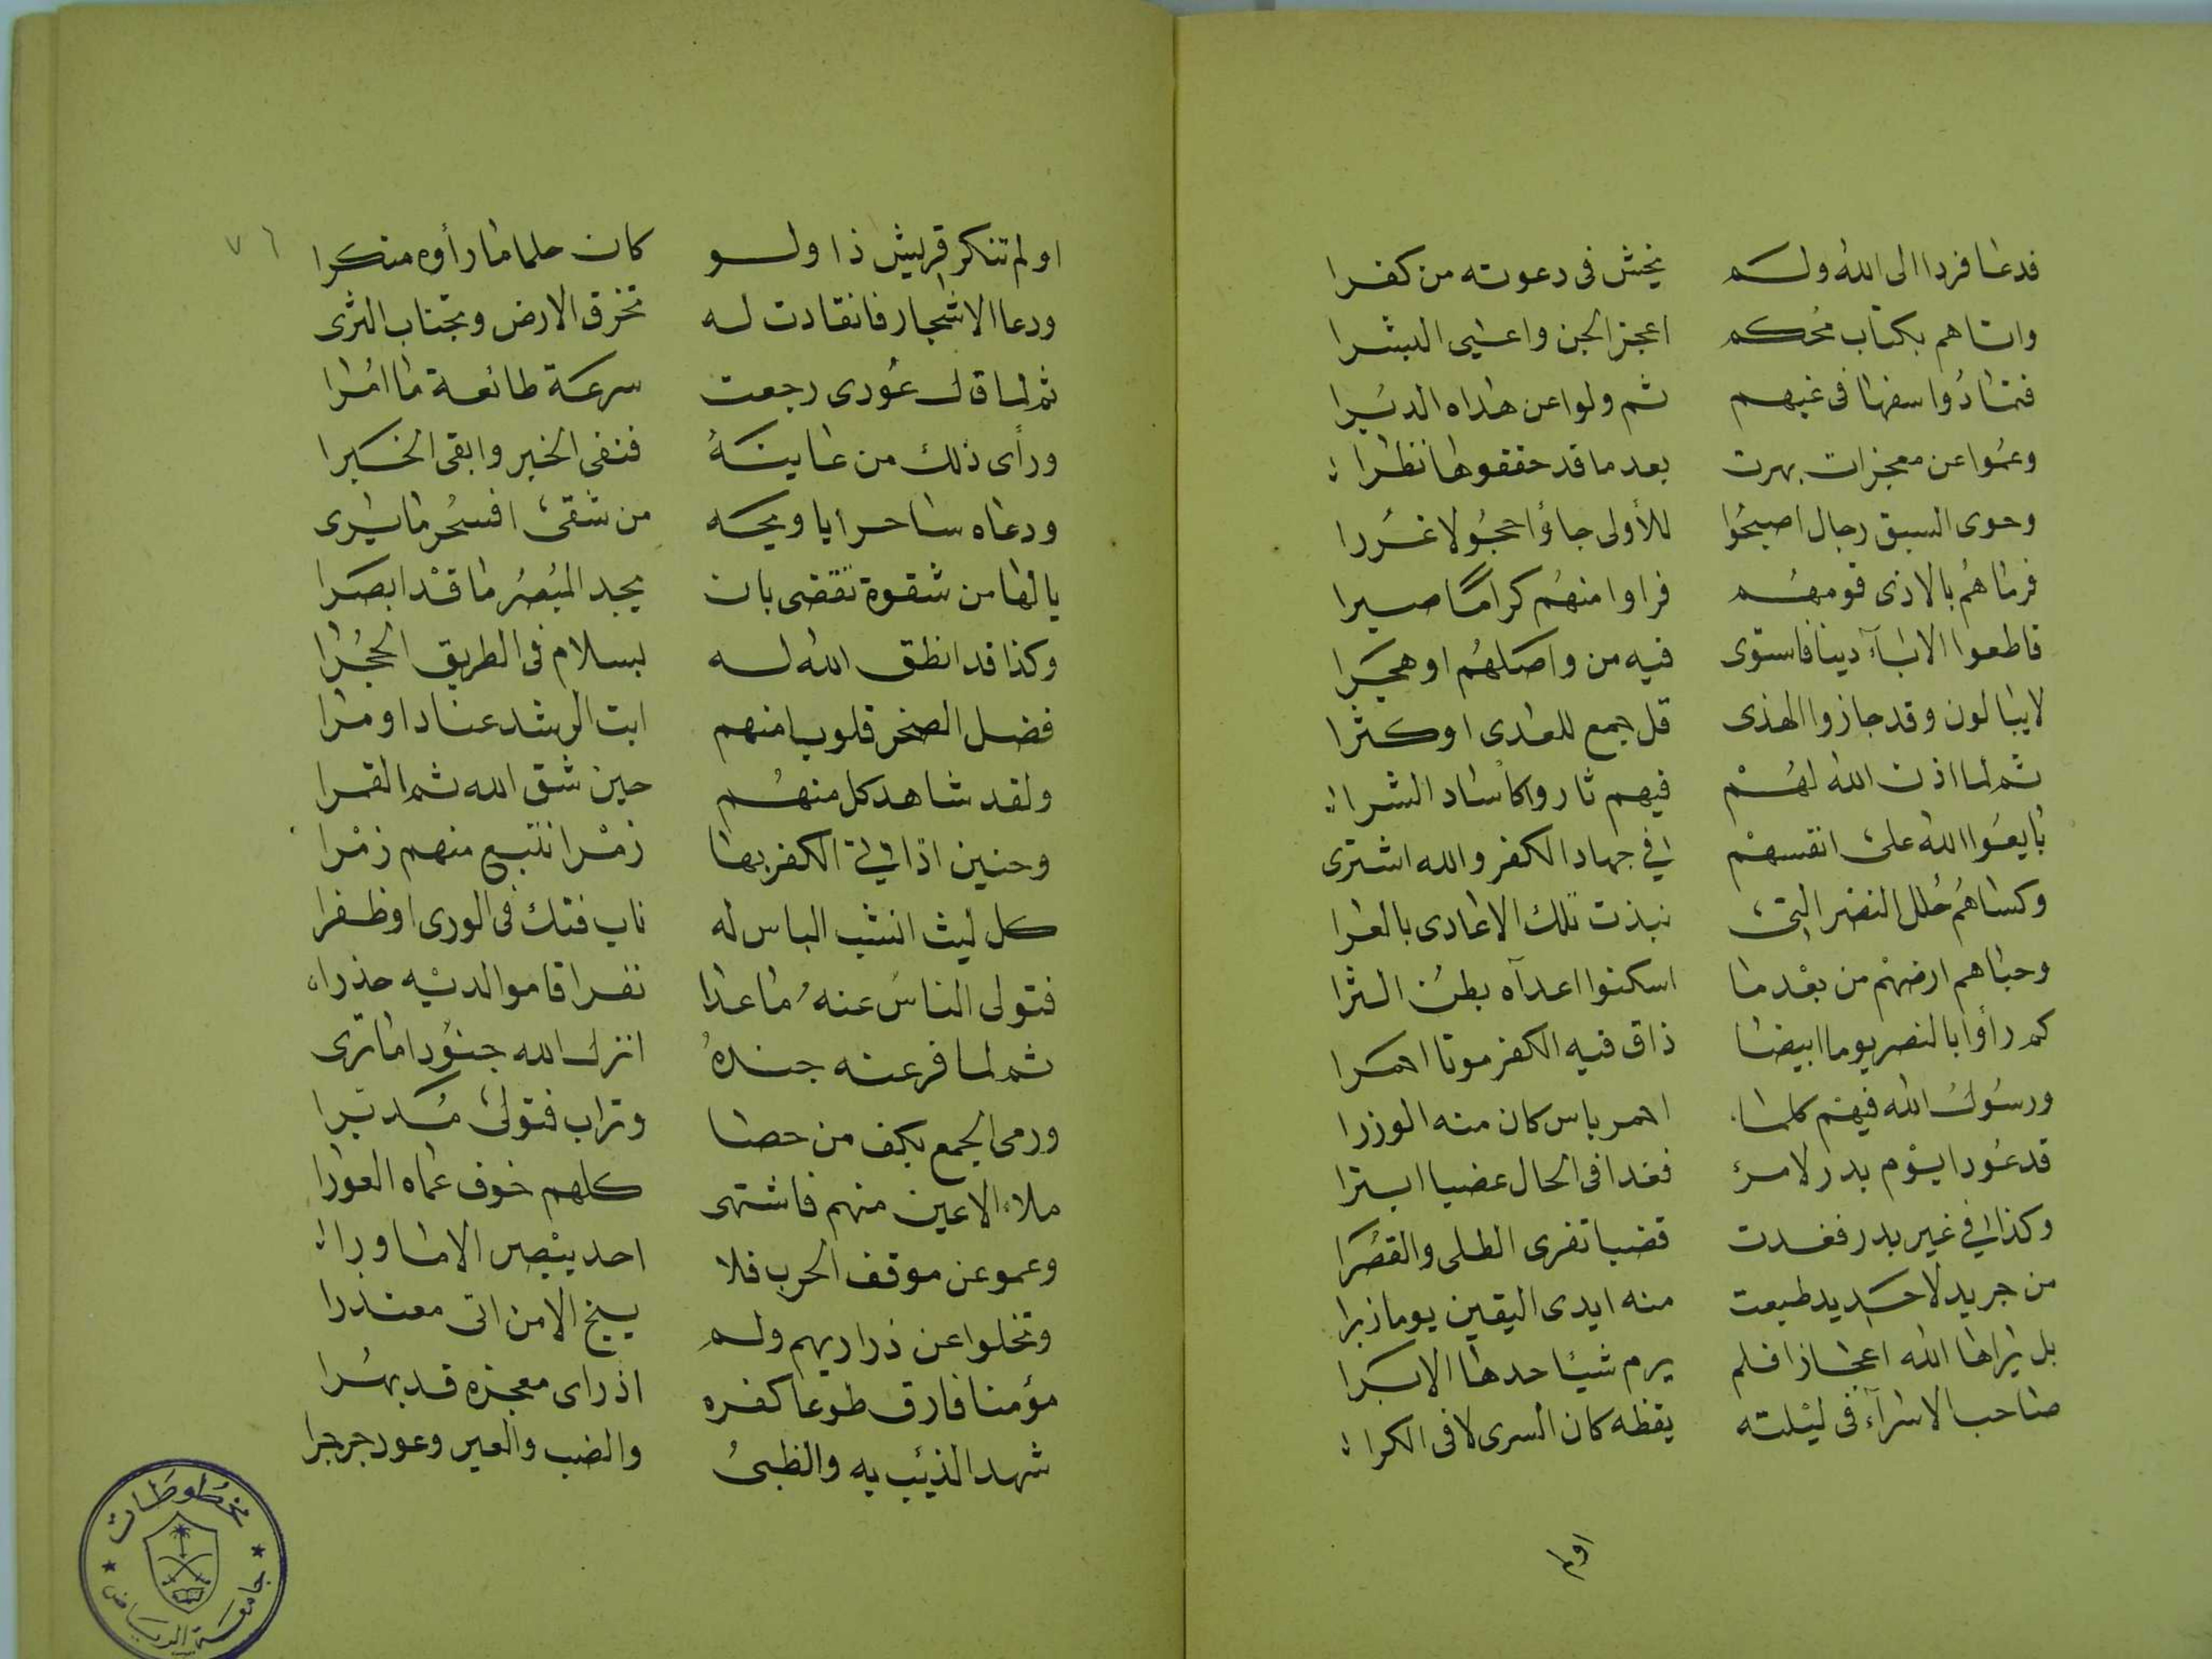 فدعا فردا الى الله ولم يخش فى دعوته من كفرا
واتاهم بكتاب محكم اعجز الجن واعيى البشرا
فتمادوا سفها فى غيهم ثم ولوا عن هداه الدبرا
وعموا عن معجزات بهرت بعد ما قد حققوها نظرا
وحوى السبق رجال اصبحوا للأولى جاؤا حجولا غررا
فرماهم بالاذى قومهم فراوا منهم كراما صبرا
قاطعوا الاباء دينا فاستوى فيه من واصلهم او هجرا
لا يبالون وقد حازوا الهدى قل جمع للعدى او كثرا
ثم لما اذن الله لهم فيهم ثاروا كأساد الشرا
بايعوا الله على انفسهم فى جهاد الكفر والله اشترى
وكساهم حلل النصر التى نبذت تلك الاعادى بالعرا
وحباهم ارضهم من بعد ما اسكنوا اعداه بطن الثرا
كم رأوا بالنصر يوما ابيضا ذاق فيه الكفر موتا احمرا
ورسول الله فيهم كلما احمر باس كان منه الوزرا
قد عودا يوم بدر لامرئ فغدا فى الحال عضبا ابترا
وكذا فى غير بدر فغدت قضبا تفرى الطلى والقصرا
من جريد لا حديد طبعت منه ايدى اليقين يوما زبرا
بل يراها الله اعجازا فلم يرم شيئا حدها الا برا
صاحب الاسراء فى ليلته يقظه كان السرى لا فى الكرا
اولم
٧٦
اولم تنكر قريش ذا ولو كان حلما ما رأوه منكرا
ودعا الاشجار فانقادت له تخرق الارض وتجتاب الثرى
ثم لما قال عودى رجعت سرعة طائعة ما امرا
ورأى ذلك من عاينه فنفى الخبر وابقى الخبرا
ودعاه ساحرا يا ويحه من شقى افسحر ما يرى
يا لها من شقوة تقضى بان يجد المبصر ما قد ابصرا
وكذا قد انطق الله له بسلام فى الطريق الحجرا
فضل الصخر قلوبا منهم ابت الرشد عنادا ومرا
ولقد شاهد كل منهم حين شق الله ثم القمرا
وحنين اذ اتى الكفر بها زمرا تتبع منهم زمرا
كل ليث انشب الباس له ناب فتك فى الورى او ظفرا
فتولى الناس عنه ما عدا نفرا قاموا لديه حذرا
ثم لما فر عنه جنده انزل الله جنودا ما ترى
ورمى الجمع بكف من حصا وتراب فتولى مدبرا
ملاء الاعين منهم فاشتهى كلهم خوف عماه العورا
وعمو عن موقف الحرب فلا احد يبصر الا ما ورا
وتخلوا عن ذراريهم ولم ينج الا من اتى معتذرا
مؤمنا فارق طوعا كفره اذ راى معجزه قد بهرا
شهد الذئب به والظبى والضب والعير وعود جرجرا
مخطوطات
جامعة الرياض